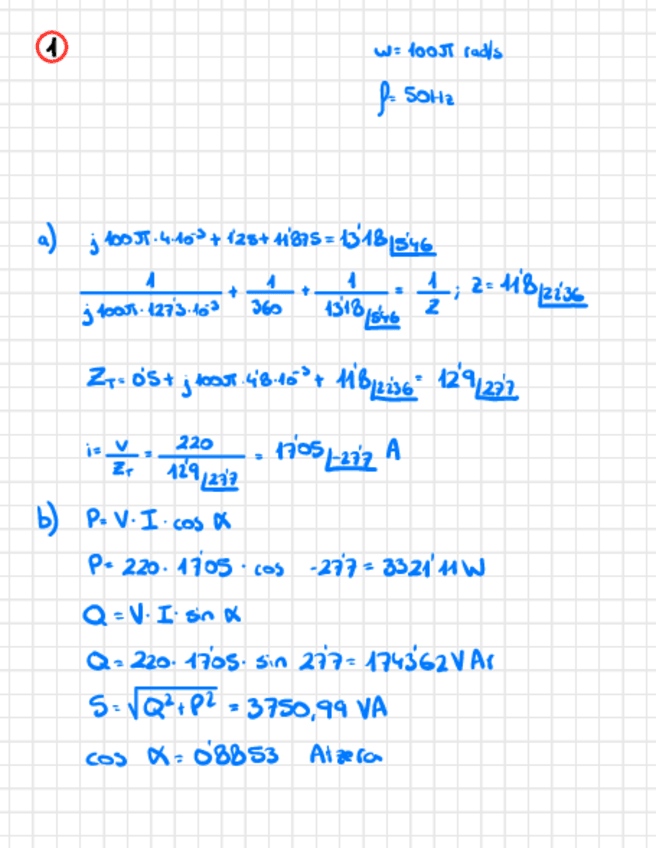 1
ω = 100π rad/s
f = 50Hz
a) j 100π · 4·10⁻³ + 1'25 + 11'875 = 13'18 |5'46
1/(j 100π · 127'3·10⁻³) + 1/360 + 1/(13'18 |5'46) = 1/Z ; Z = 11'8 |22'36
Z_T = 0'5 + j 100π · 4'8·10⁻³ + 11'8 |22'36 = 12'9 |27'7
i = V/Z_T = 220/(12'9 |27'7) = 17'05 |-27'7 A
b) P = V · I · cos α
P = 220 · 17'05 · cos -27'7 = 3321'11 W
Q = V · I · sin α
Q = 220 · 17'05 · sin 27'7 = 1743'62 VAr
S = √(Q² + P²) = 3750,99 VA
cos α = 0'8853 Atzera